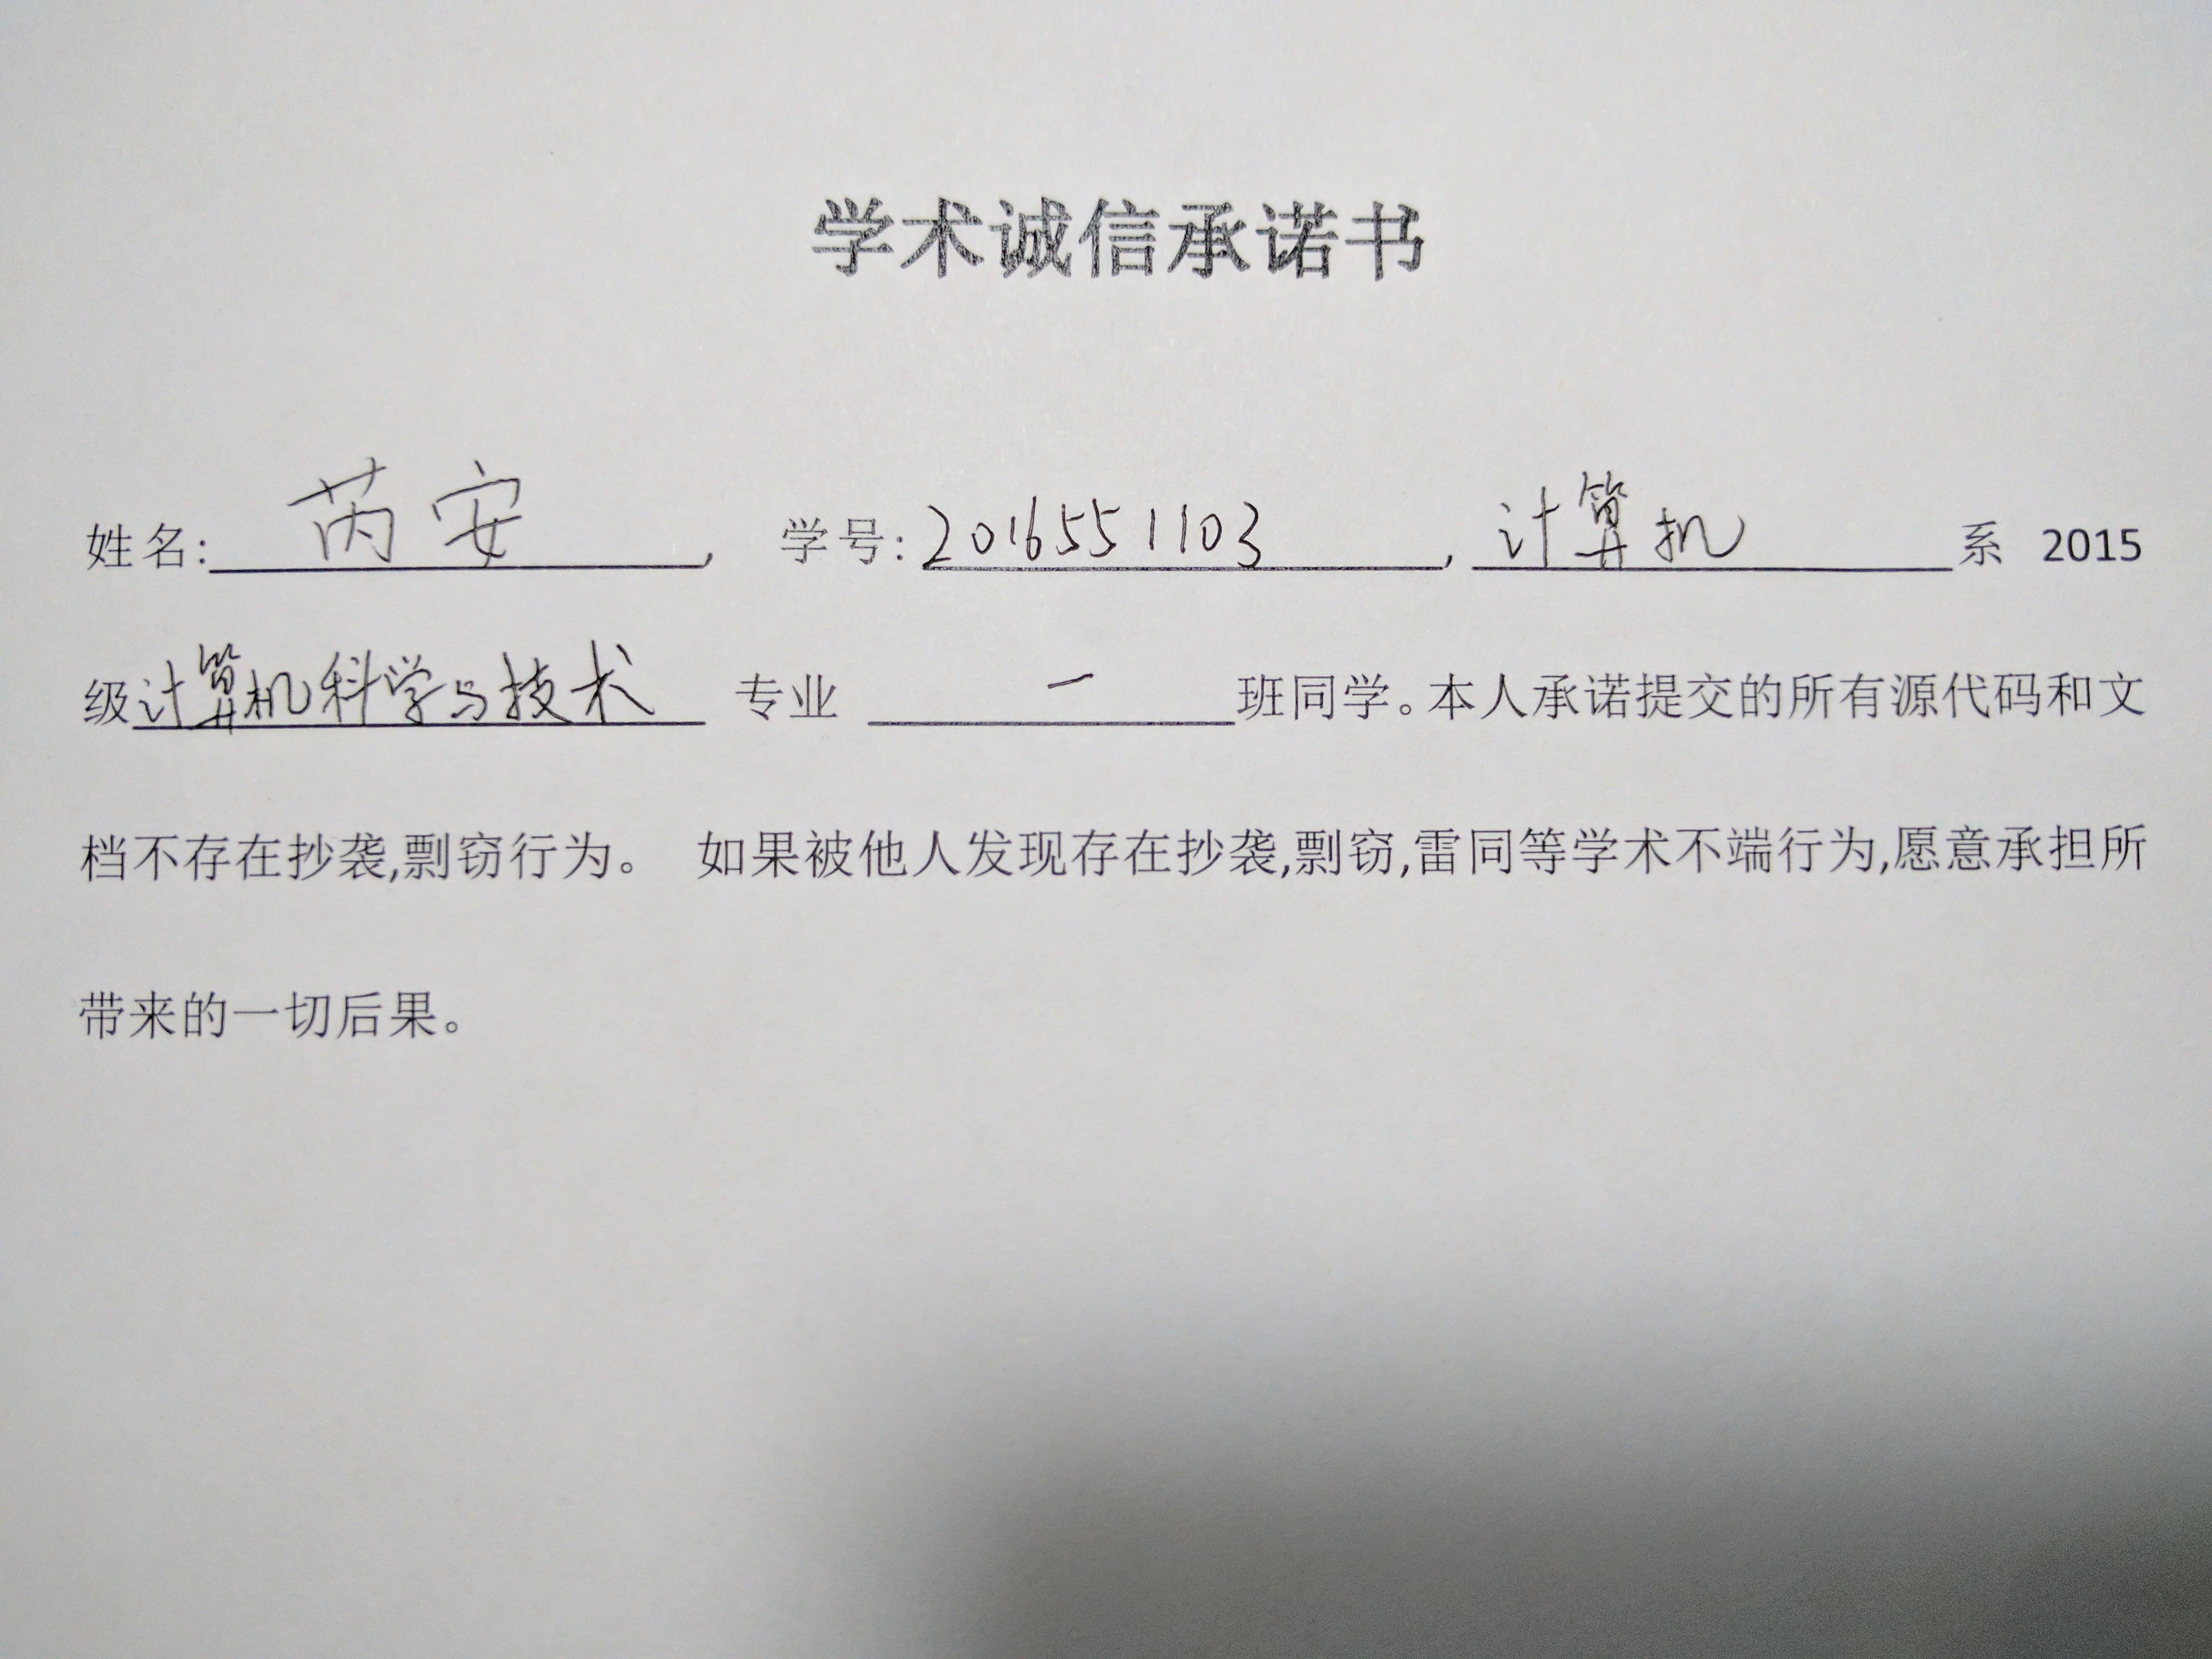 学术诚信承诺书
姓名: 芮安, 学号: 2016551103, 计算机 系 2015
级计算机科学与技术 专业 一 班同学。本人承诺提交的所有源代码和文
档不存在抄袭,剽窃行为。 如果被他人发现存在抄袭,剽窃,雷同等学术不端行为,愿意承担所
带来的一切后果。